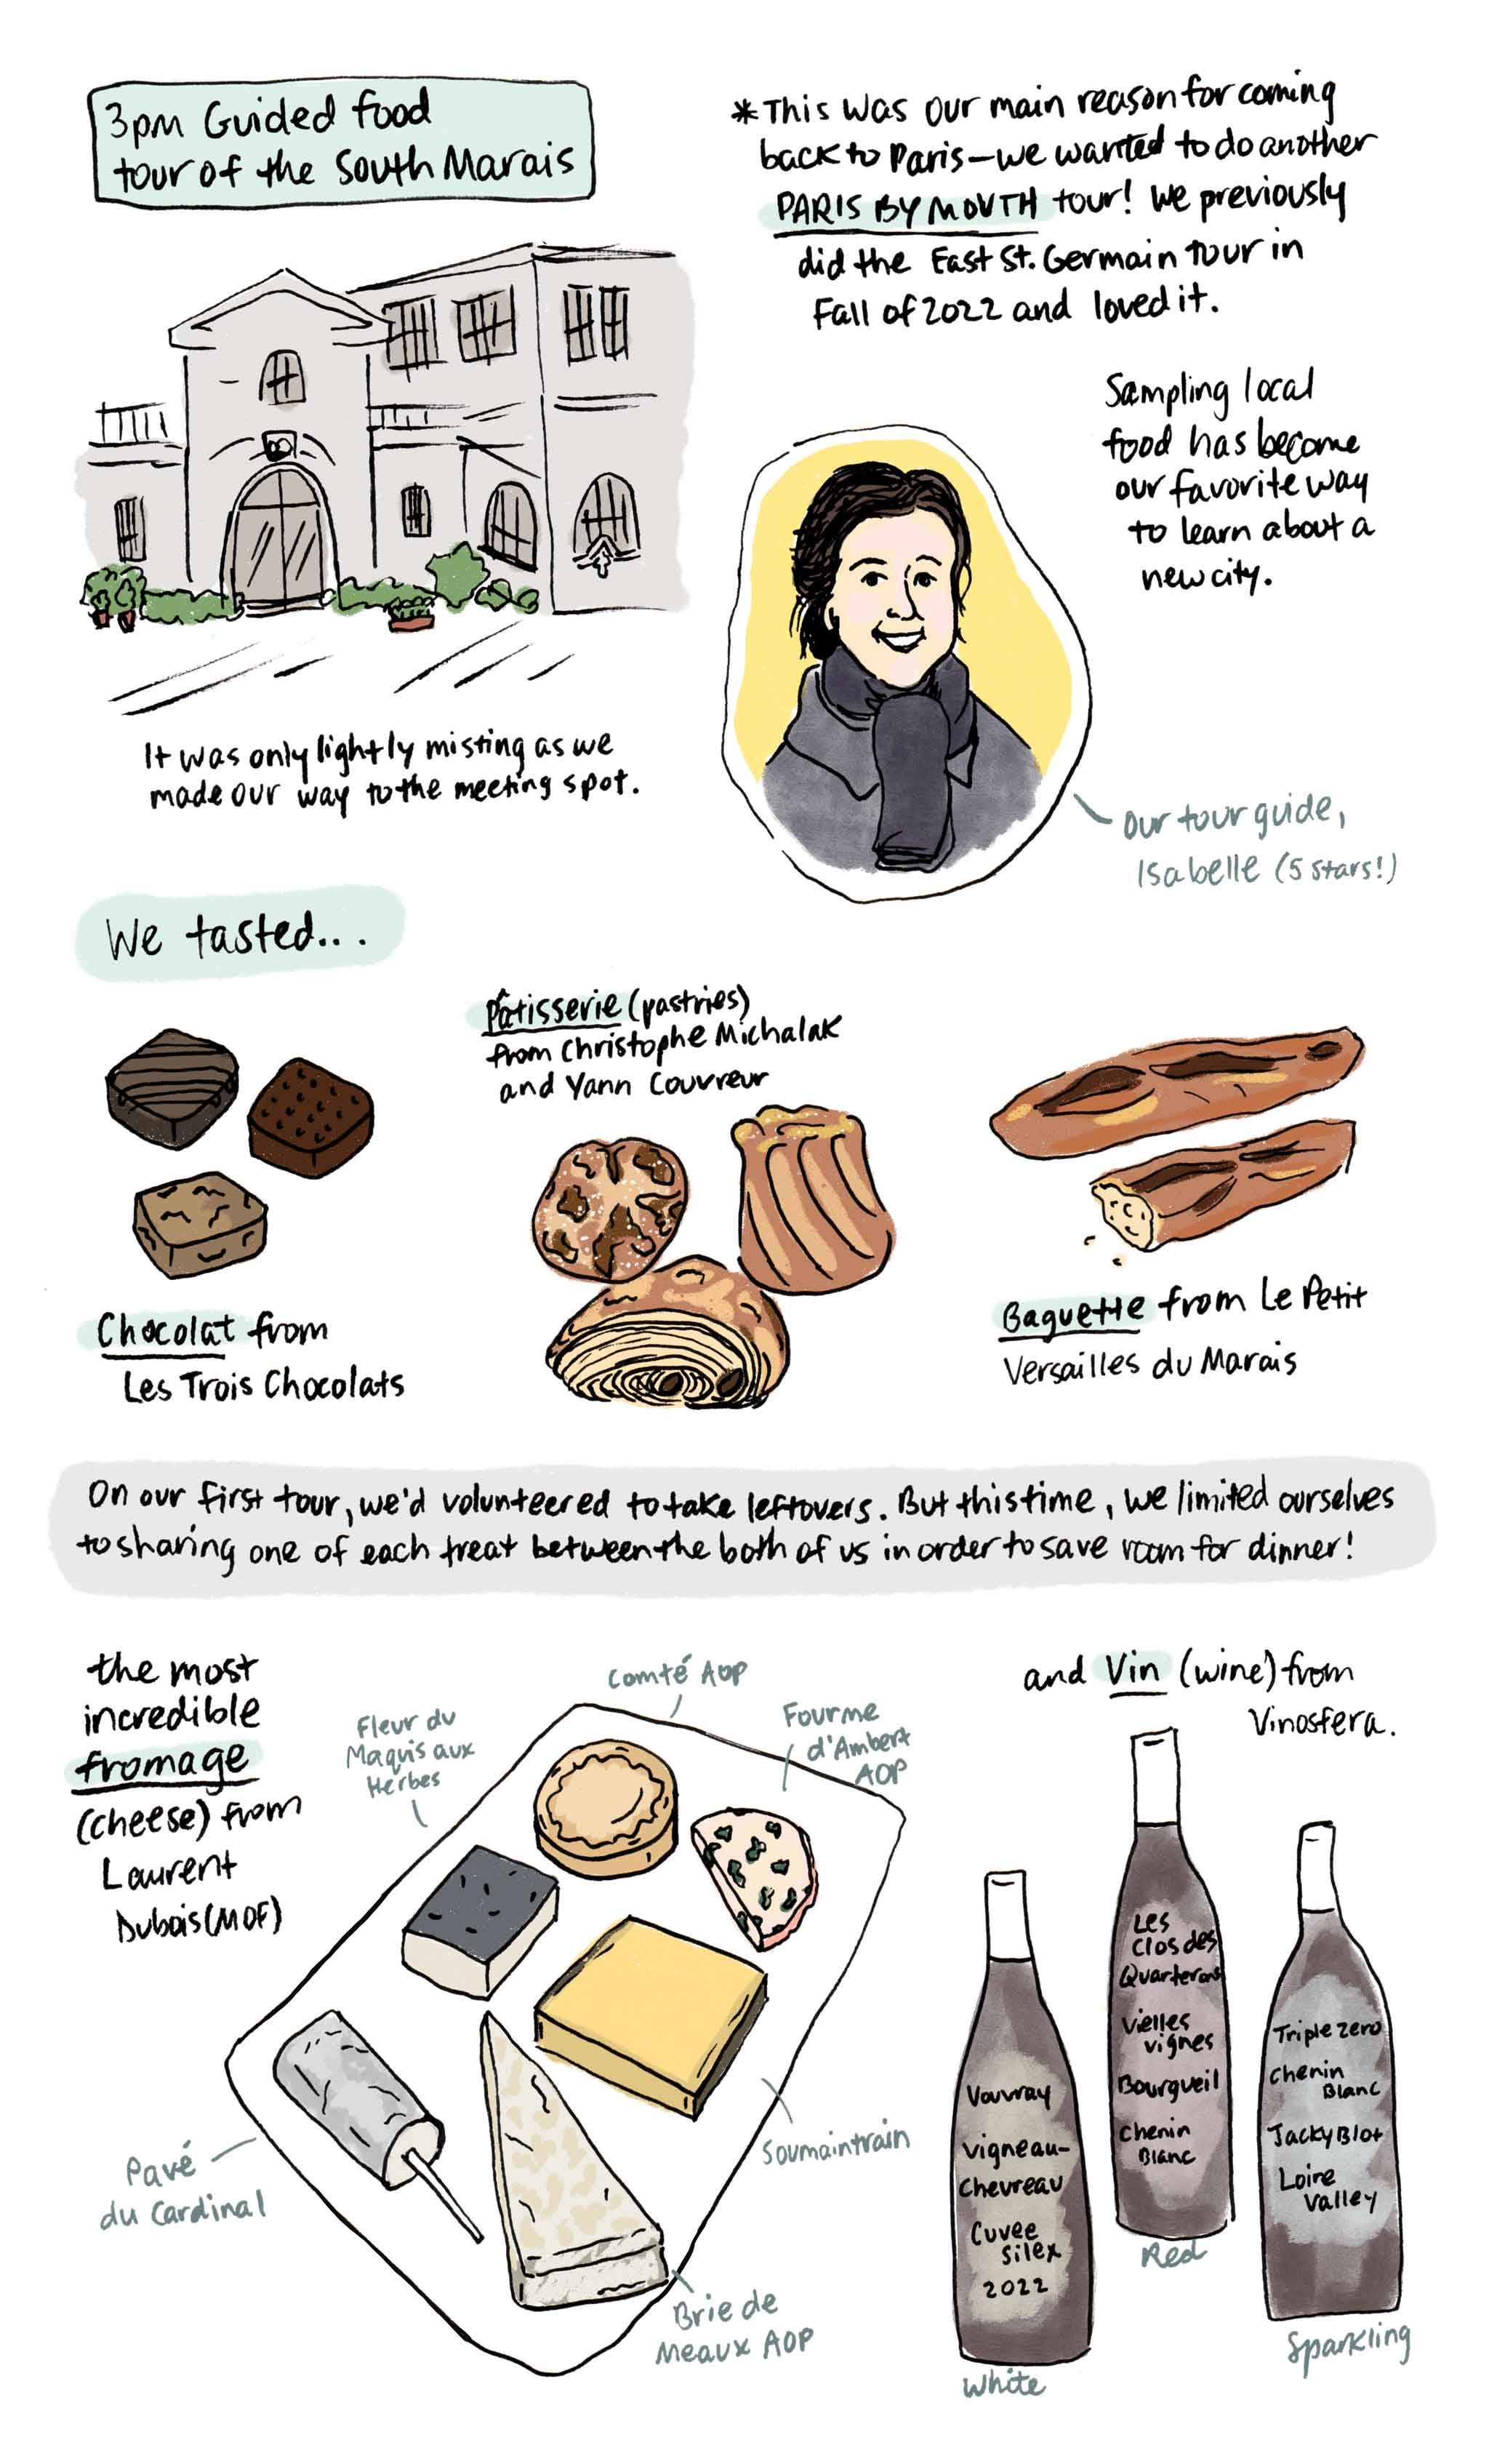 3pm Guided food
tour of the South Marais
*This was our main reason for coming
back to Paris—we wanted to do another
PARIS BY MOUTH tour! We previously
did the East St. Germain tour in
Fall of 2022 and loved it.
Sampling local
food has become
our favorite way
to learn about a
new city.
It was only lightly misting as we
made our way to the meeting spot.
our tour guide,
Isabelle (5 stars!)
We tasted...
Pâtisserie (pastries)
from Christophe Michalak
and Yann Couvreur
Chocolat from
Les Trois Chocolats
Baguette from Le Petit
Versailles du Marais
On our first tour, we'd volunteered to take leftovers. But this time, we limited ourselves
to sharing one of each treat between the both of us in order to save room for dinner!
the most
incredible
fromage
(cheese) from
Laurent
Dubois (MOF)
Fleur du
Maquis aux
Herbes
Comté AOP
Fourme
d'Ambert
AOP
Pavé
du Cardinal
Soumaintrain
Brie de
Meaux AOP
and Vin (wine) from
Vinosfera.
Vouvray
Vigneau-
Chevreau
Cuvee
Silex
2022
White
Les
Clos des
Quarterons
Vielles
vignes
Bourgueil
Chenin
Blanc
Red
Triple zero
Chenin
Blanc
Jacky Blot
Loire
Valley
Sparkling